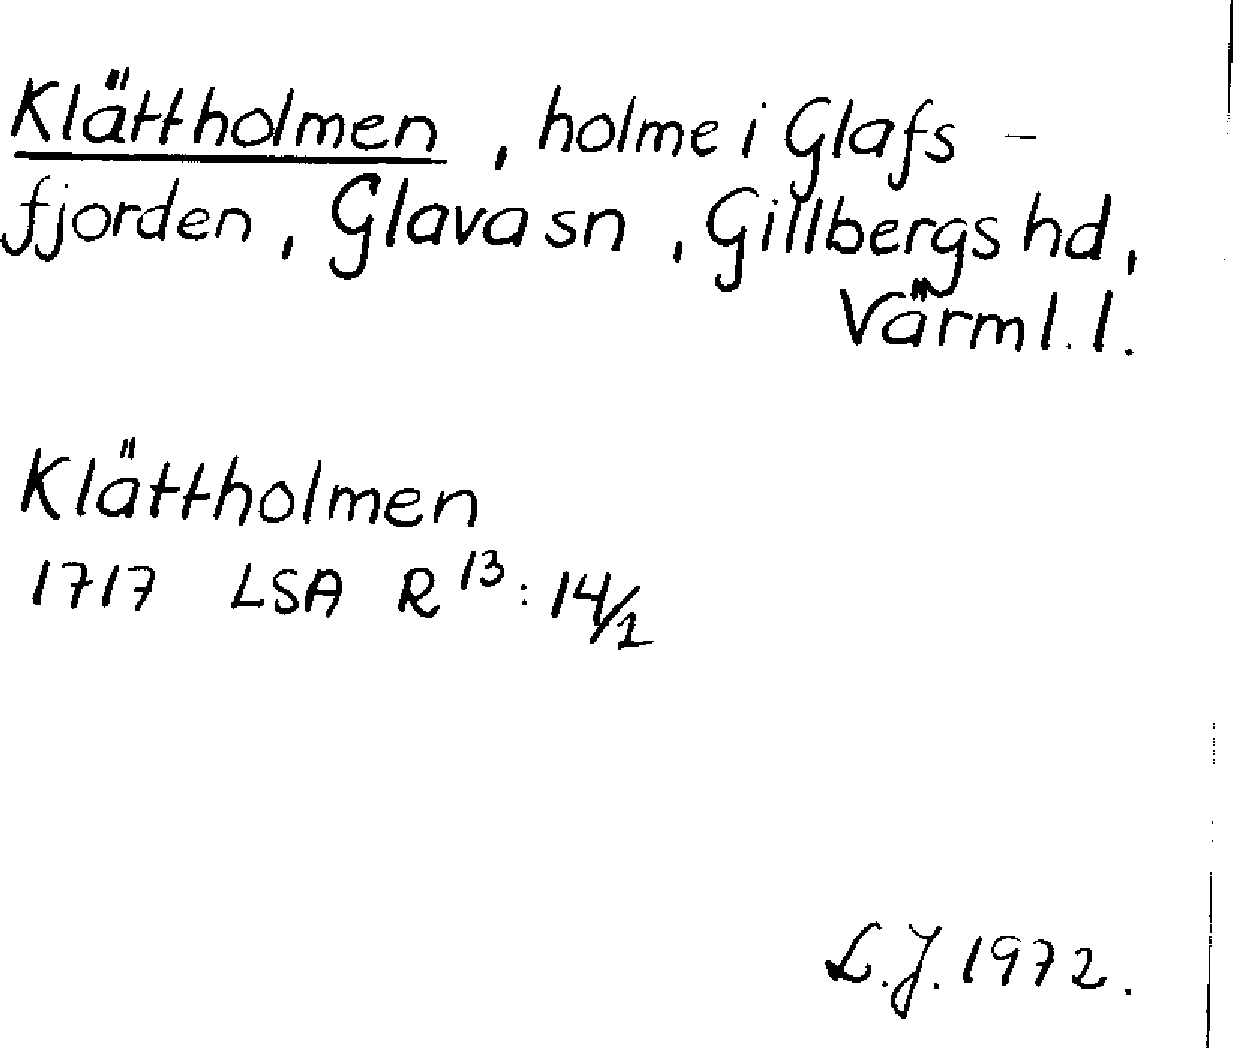 Klättholmen, holme i Glafs-
fjorden, Glava sn, Gillbergs hd,
Värml. l.
Klättholmen
1717 LSA R 13: 14/1
L.J. 1972.